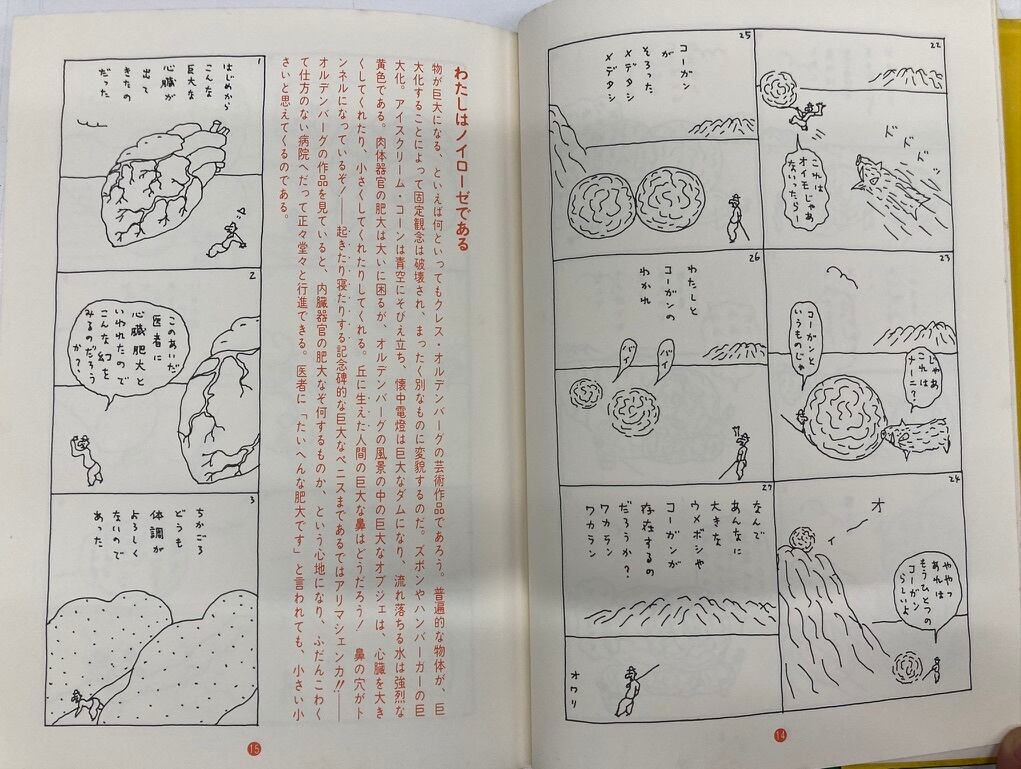 22
ドドド
これは
オイモじゃあ
ないったらー
23
じゃあ
これは
ナーニ?
コーガンと
いうものじゃ
24
オーイ
ややっ
あれは
もうひとつの
コーガン
らしいよ
25
コーガン
が
そろった
メデタシ
メデタシ
26
わたしと
コーガンの
わかれ
バイ
バイ
27
なんで
あんなに
大きな
ウメボシや
コーガンが
存在するの
だろうか?
ワカラン
ワカラン
オワリ
14
わたしはノイローゼである
物が巨大になる、といえば何といってもクレス・オルデンバーグの芸術作品であろう。普遍的な物体が、巨
大化することによって固定観念は破壊され、まったく別なものに変貌するのだ。ズボンやハンバーガーの巨
大化。アイスクリーム・コーンは青空にそびえ立ち、懐中電燈は巨大なダムになり、流れ落ちる水は強烈な
黄色である。肉体器官の肥大は大いに困るが、オルデンバーグの風景の中の巨大なオブジェは、心臓を大き
くしてくれたり、小さくしてくれたりしてくれる。丘に生えた人間の巨大な鼻はどうだろう! 鼻の穴がト
ンネルになっているぞ/――起きたり寝たりする記念碑的な巨大なペニスまであるではアリマシェンカ!!――
オルデンバーグの作品を見ていると、内臓器官の肥大なぞ何するものか、という心地になり、ふだんこわく
て仕方のない病院へだって正々堂々と行進できる。医者に「たいへんな肥大です」と言われても、小さい小
さいと思えてくるのである。
1
はじめから
こんな
巨大な
心臓が
出て
きたの
だった
2
このあいだ
医者に
心臓肥大と
いわれたので
こんな幻を
みるのだろう
か?
3
ちかごろ
どうも
体調が
よろしく
ないので
あった
15